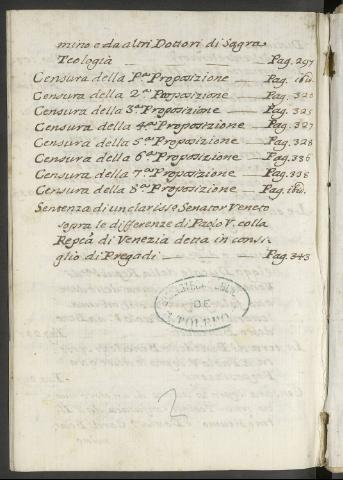 mino e da altri Dottori di Sagra
Teologia — Pag. 297
Censura della Pma Proposizione — Pag. ibid.
Censura della 2da Proposizione — Pag. 320
Censura della 3za Proposizione — Pag. 325
Censura della 4ta Proposizione — Pag. 327
Censura della 5ta Proposizione — Pag. 328
Censura della 6ta Proposizione — Pag. 336
Censura della 7ma Proposizione — Pag. 338
Censura della 8va Proposizione — Pag. ibid.
Sentenza di un clarisso. Senator Veneto
sopra le differenze di Paolo V. colla
Repca. di Venezia detta in consi-
glio di Pregadi — Pag. 343
DE
TOLEDO
2